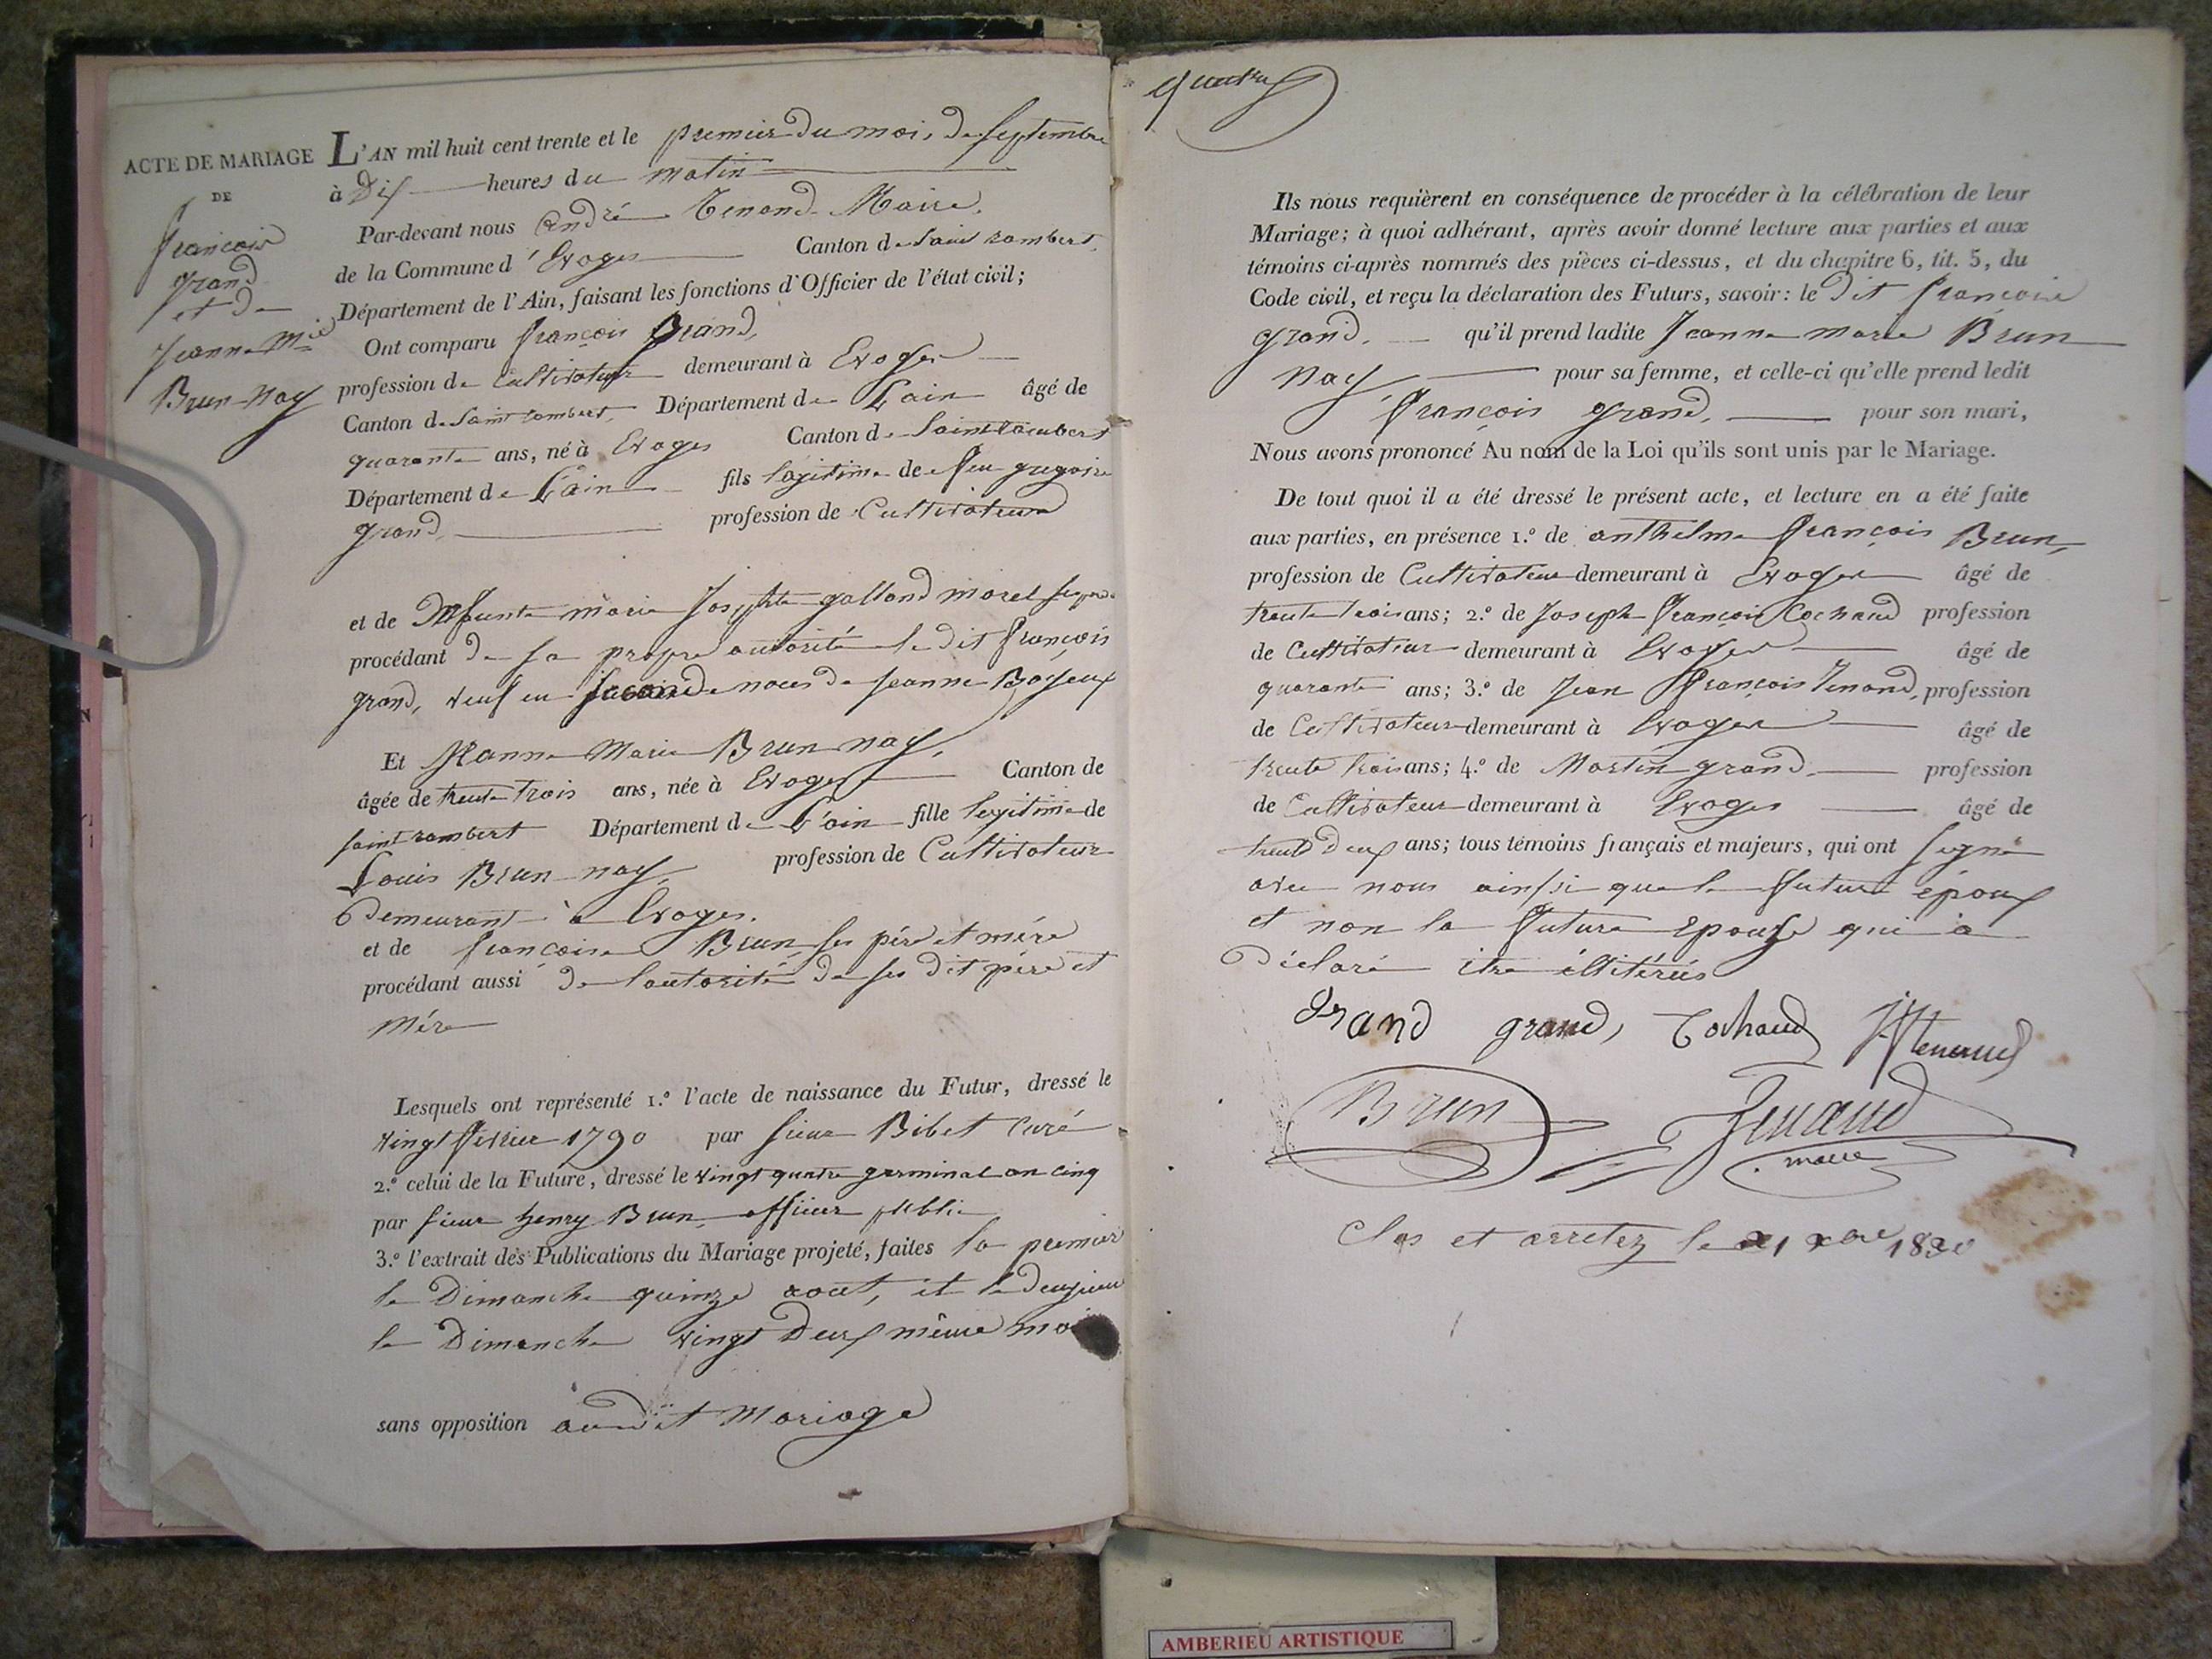 ACTE DE MARIAGE
DE
françois
grand
et de
Jeanne Mie
Brun-Nay
L'AN mil huit cent trente et le premier du mois de septembre
à Dix heures du matin
Par-devant nous André Tenand Maire
de la Commune d'Evoges Canton de Saint rambert
Département de l'Ain, faisant les fonctions d'Officier de l'état civil;
Ont comparu françois Grand,
profession de Cultivateur demeurant à Evoges
Canton de Saint rambert Département de L'ain âgé de
quarante ans, né à Evoges Canton de Saint rambert
Département de L'ain fils légitime de feu gregoire
grand, profession de Cultivateur
et de Deffunte marie Josephte galland morel
procédant de sa propre autorité le dit françois
grand, veuf en seconde noces de jeanne
Et Jeanne Marie Brun nay,
âgée de trente trois ans, née à Evoges Canton de
saint rambert Département de L'ain fille legitime de
Louis Brun nay, profession de Cultivateur
Demeurant à Evoges.
et de françoise Brun, ses pére et mére
procédant aussi de l'autorité de ses dit pére et
Mére
Lesquels ont représenté 1.º l'acte de naissance du Futur, dressé le
vingt fevrier 1790 par sieur Bibet Curé
2.º celui de la Future, dressé le vingt quatre germinal an cinq
par sieur henry Brun, officier public
3.º l'extrait des Publications du Mariage projeté, faites la premier
le Dimanche quinze aout, et le deuxieme
le Dimanche vingt Deux même mois
sans opposition audit Mariage
quatre
Ils nous requièrent en conséquence de procéder à la célébration de leur
Mariage; à quoi adhérant, après avoir donné lecture aux parties et aux
témoins ci-après nommés des pièces ci-dessus, et du chapitre 6, tit. 5, du
Code civil, et reçu la déclaration des Futurs, savoir: le Dit françois
grand, qu'il prend ladite Jeanne marie Brun
nay, pour sa femme, et celle-ci qu'elle prend ledit
françois grand, pour son mari,
Nous avons prononcé Au nom de la Loi qu'ils sont unis par le Mariage.
De tout quoi il a été dressé le présent acte, et lecture en a été faite
aux parties, en présence 1.º de anthelme françois Brun,
profession de Cultivateur demeurant à Evoges âgé de
trente trois ans; 2.º de Joseph François Cochaud profession
de Cultivateur demeurant à Evoges âgé de
quarante ans; 3.º de Jean François Tenand, profession
de Cultivateur demeurant à Evoges âgé de
trente trois ans; 4.º de Martin grand, profession
de Cultivateur demeurant à Evoges âgé de
trente Deux ans; tous témoins français et majeurs, qui ont signé
avec nous ainssi que le futur époux
et non la future epouse qui a
Déclaré être illitérés
Grand grand, Cochaud Jf tenand
Brun Tenand
maire
Clos et arretez le 31 xbre 1830
AMBERIEU ARTISTIQUE